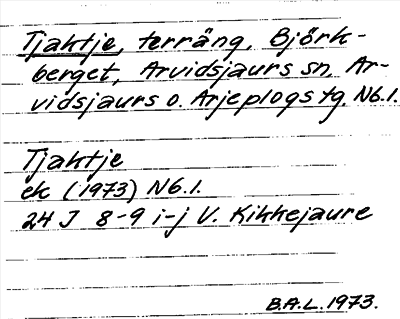 Tjaktje, terräng, Björk-
berget, Arvidsjaurs sn, Ar-
vidsjaurs o. Arjeplogs tg. Nb.l.
Tjaktje
ek (1973) Nb.l.
24 J 8-9 i-j V. Kikkejaure
B.A.L. 1973.